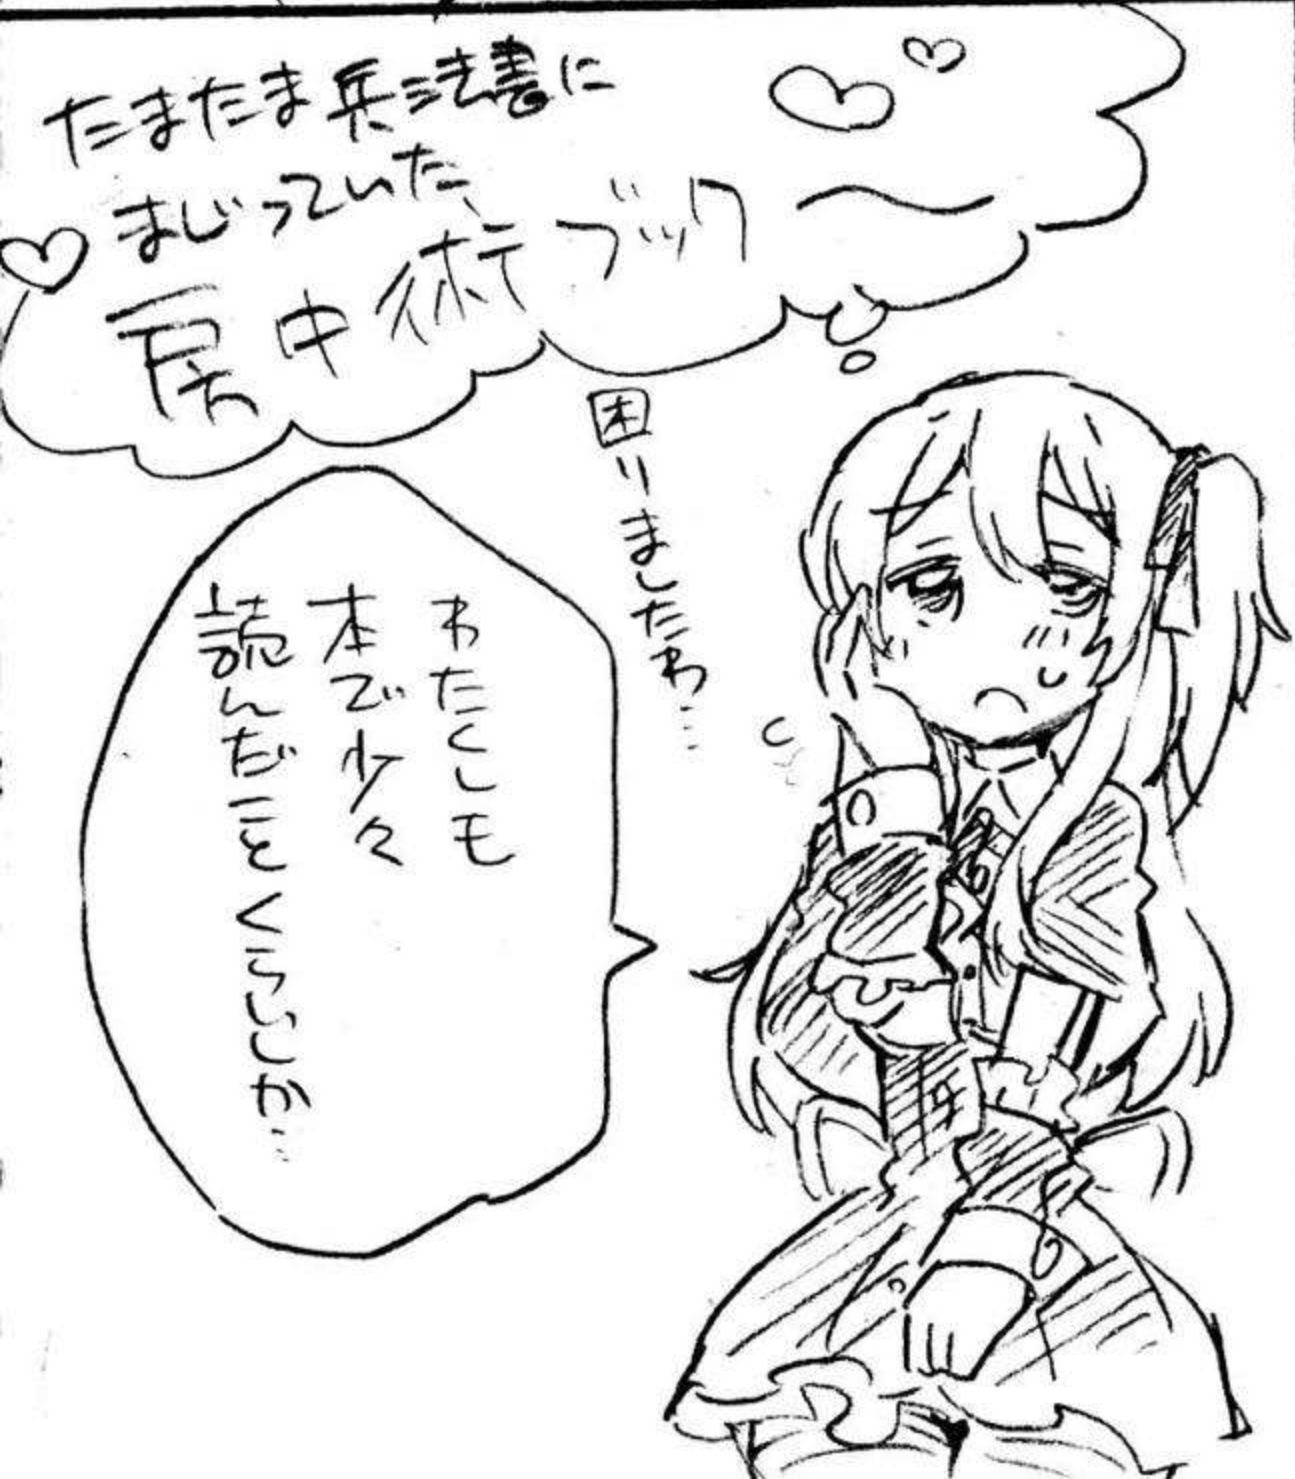 たまたま兵法書に
まじっていた、
房中術ブック〜
困りましたわ…
わたくしも
本で少々
読んだことくらいしか…